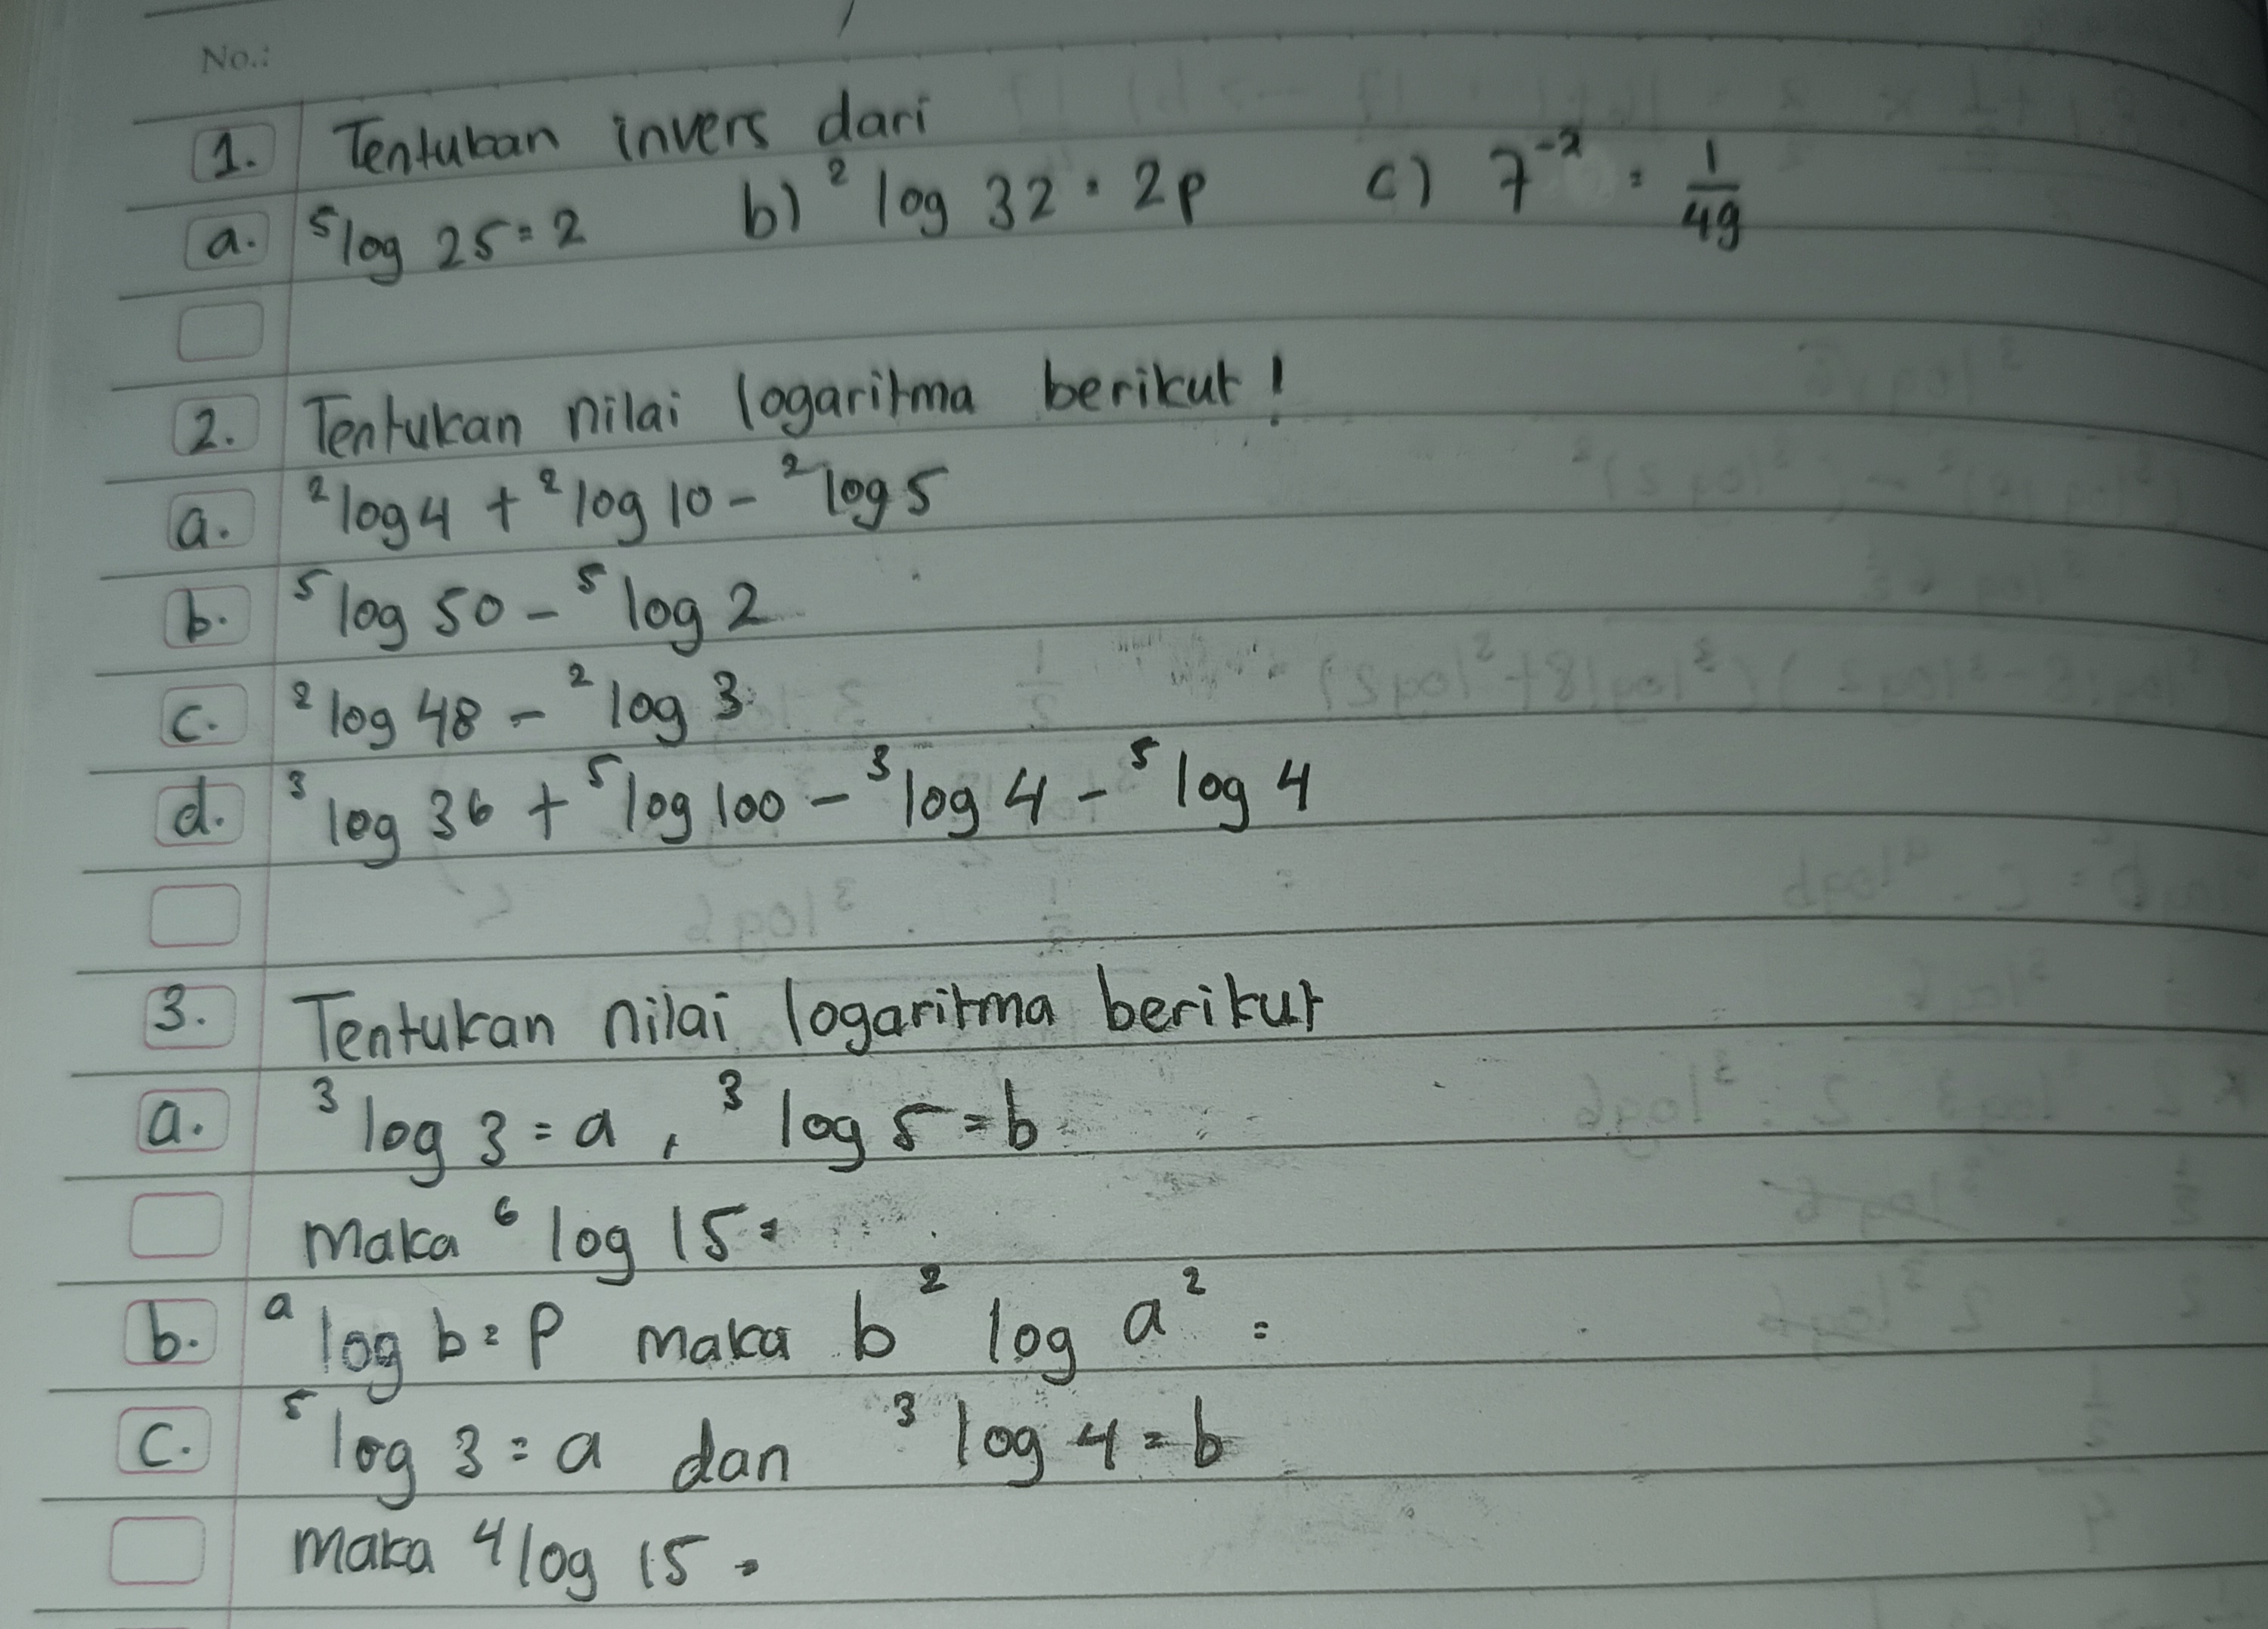 No.:
1. Tentukan invers dari
a. ⁵log 25 = 2 b) ² log 32 = 2p c) 7⁻² = 1/49
2. Tentukan nilai logaritma berikut !
a. ²log 4 + ²log 10 - ²log 5
b. ⁵log 50 - ⁵log 2
c. ²log 48 - ²log 3
d. ³log 36 + ⁵log 100 - ³log 4 - ⁵log 4
3. Tentukan nilai logaritma berikut
a. ³log 3 = a, ³log 5 = b
Maka ⁶log 15 =
b. ᵃlog b = p maka b² log a² =
c. ⁵log 3 = a dan ³log 4 = b
Maka ⁴log 15 =